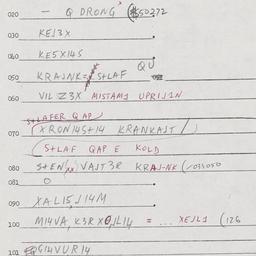 020 — Q DRONG (#50272
030 KEJ3X
040 KE5X14S
QU
050 KRAJNK= StLAF
060 VIL Z3X MISTAMJ UPRIJ1N
StLAFER QAP
070 (XRON14St14 KRANKAJT /)
(StLAF QAP E KOLD
080 StEN/ VAJT3R KRAJ-NK (/031050
081 O
090 XAL15,J14M
100 M14VA, K3RX0,JL14 = ... XEJL1 (126
101 G14VUR14